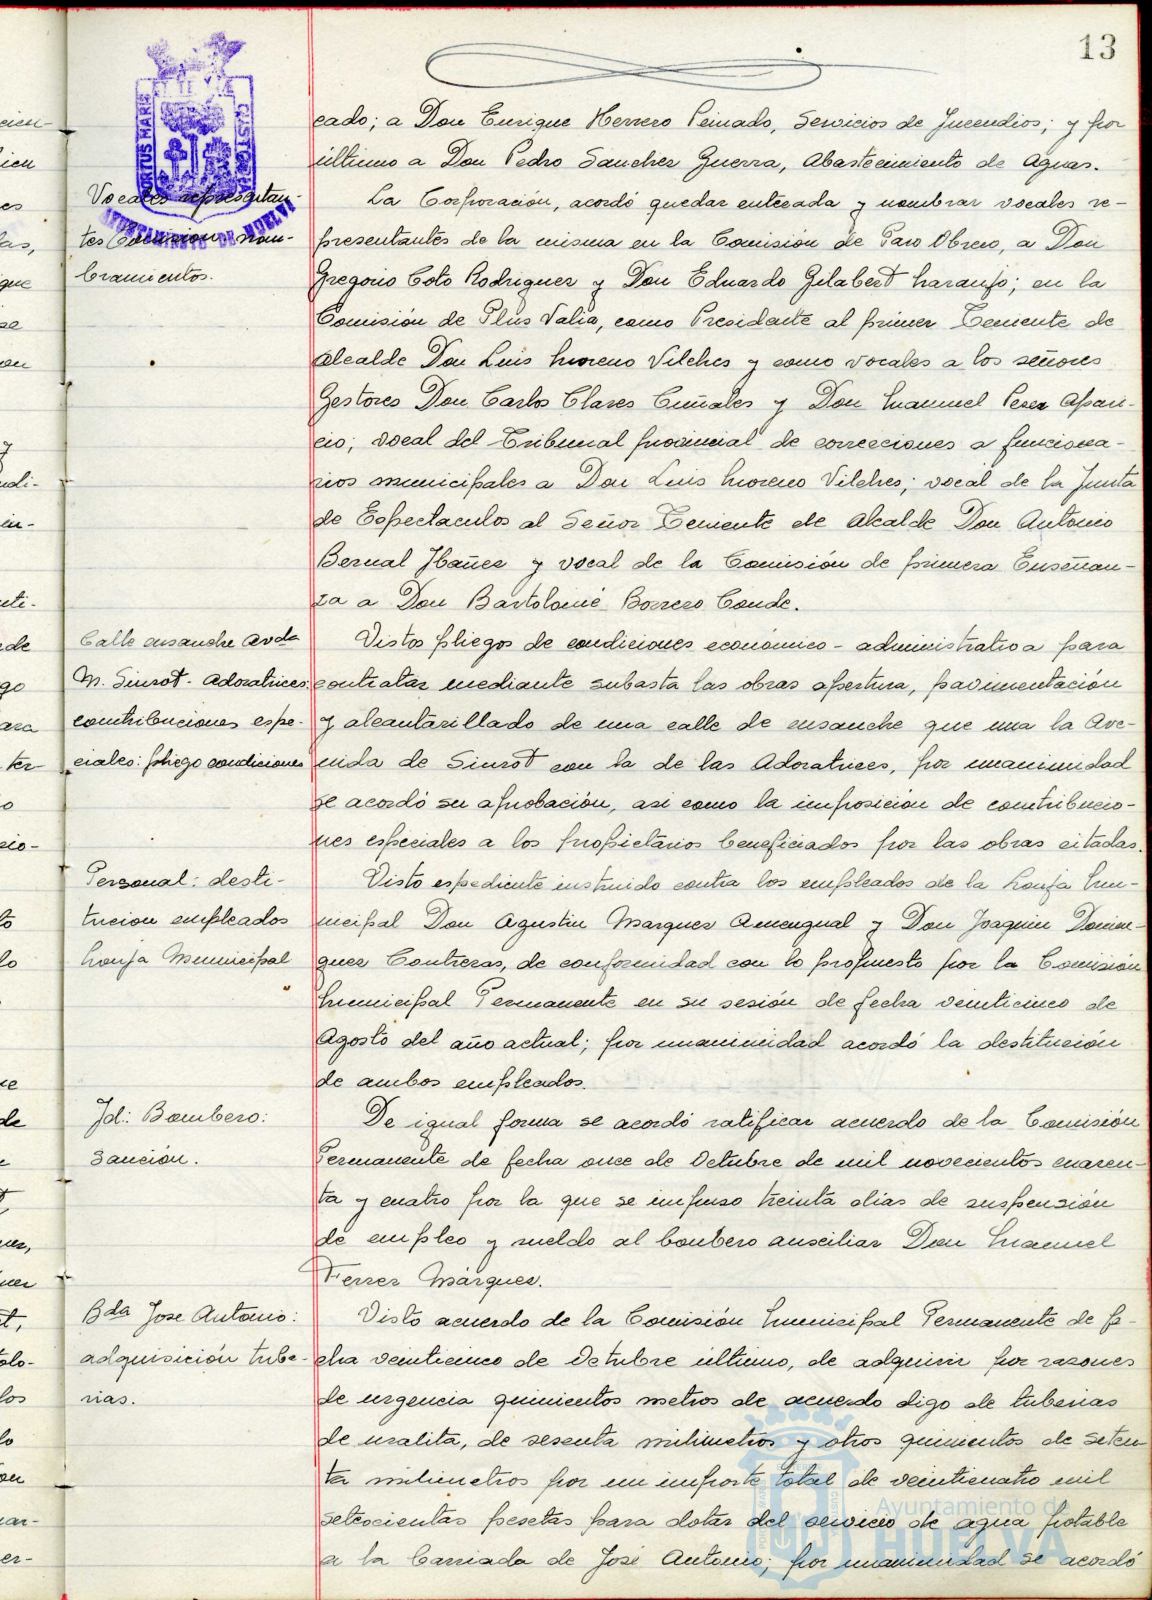 13
cado; a Don Enrique Herrero Peinado, Servicios de Incendios; y por
último a Don Pedro Sanchez Guerra, Abastecimiento de Aguas.
Vocales representan-
tes Comision nom-
bramientos.
La Corporación, acordó quedar enterada y nombrar vocales re-
presentantes de la misma en la Comisión de Paro Obrero, a Don
Gregorio Coto Rodriguez y Don Eduardo Gilabert Naranjo; en la
Comisión de Plus Valia, como Presidente al primer Teniente de
Alcalde Don Luis Moreno Vilches y como vocales a los señores
Gestores Don Carlos Clares Cuñales y Don Manuel Perez Apari-
cio; vocal del Tribunal provincial de correcciones a funciona-
rios municipales a Don Luis Moreno Vilches; vocal de la Junta
de Espectaculos al Señor Teniente de Alcalde Don Antonio
Bernal Ibañez y vocal de la Comisión de primera Enseñan-
za a Don Bartolomé Borrero Conde.
Calle ensanche Avda
M. Siurot - Adoratrices:
contribuciones espe-
ciales: pliego condiciones
Vistos pliegos de condiciones económico-administrativa para
contratar mediante subasta las obras apertura, pavimentación
y alcantarillado de una calle de ensanche que una la Ave-
nida de Siurot con la de las Adoratrices, por unanimidad
se acordó su aprobación, asi como la imposición de contribucio-
nes especiales a los propietarios beneficiados por las obras citadas.
Personal: desti-
tucion empleados
Lonja Municipal
Visto espediente instruido contra los empleados de la Lonja Mu-
nicipal Don Agustin Marquez Amengual y Don Joaquin Domin-
guez Contreras, de conformidad con lo propuesto por la Comisión
Municipal Permanente en su sesión de fecha veinticinco de
Agosto del año actual; por unanimidad acordó la destitución
de ambos empleados.
Id: Bombero:
Sanción.
De igual forma se acordó ratificar acuerdo de la Comisión
Permanente de fecha once de Octubre de mil novecientos cuaren-
ta y cuatro por la que se impuso treinta dias de suspensión
de empleo y sueldo al bombero auxiliar Don Manuel
Ferrer Márquez.
Bda Jose Antonio:
adquisición tube-
rias.
Visto acuerdo de la Comisión Municipal Permanente de fe-
cha veinticinco de Octubre último, de adquirir por razones
de urgencia quinientos metros de acuerdo digo de tuberias
de uralita, de sesenta milimetros y otros quinientos de seten-
ta milimetros por un importe total de veinticuatro mil
setecientas pesetas para dotar del servicio de agua potable
a la barriada de José Antonio; por unanimidad se acordó
PORTUS MARIS ET TERRE CUSTODIA
AYUNTAMIENTO DE HUELVA
Ayuntamiento de
HUELVA